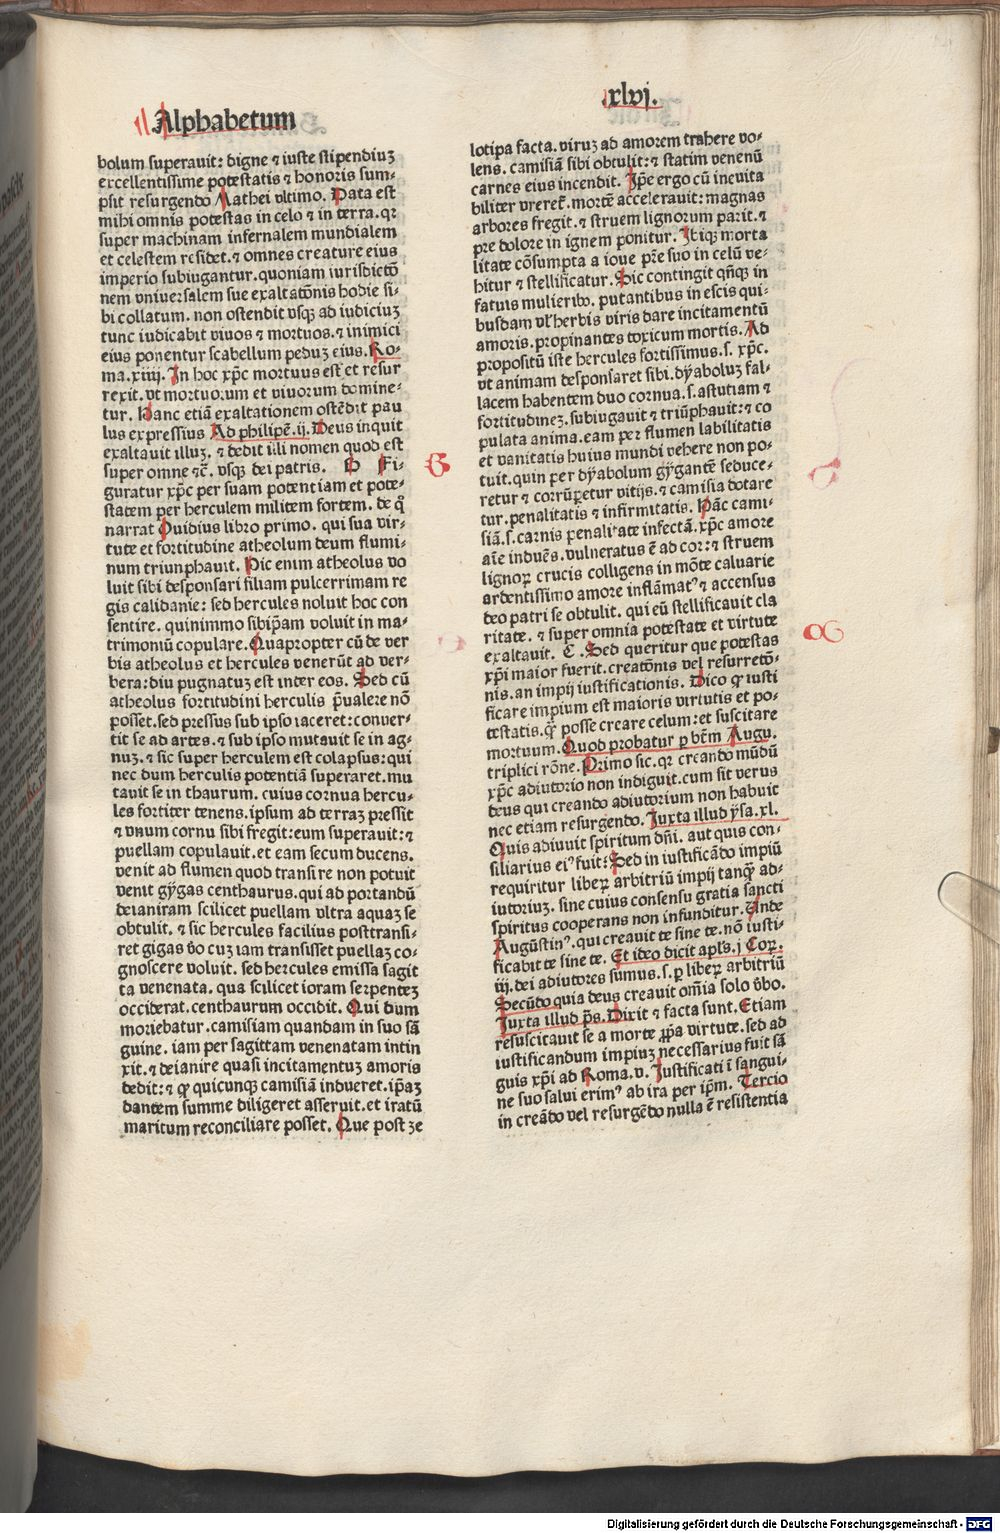 Alphabetum
xlvj.
bolum superauit: digne ⁊ iuste stipendiuꝫ
excellentissime potestatis ⁊ honoris sum⸗
psit resurgendo Mathei vltimo. Data est
mihi omnis potestas in celo ⁊ in terra. qꝛ
super machinam infernalem mundialem
et celestem residet. ⁊ omnes creature eius
imperio subiugantur. quoniam iurisdictō
nem vniuersalem sue exaltatōnis hodie si⸗
bi collatum. non ostendit vsqꝫ ad iudiciuꝫ
tunc iudicabit viuos ⁊ mortuos. ⁊ inimici
eius ponentur scabellum peduꝫ eius. Ro⸗
ma. xiiij. In hoc xp̄c mortuus est et resur
rexit. vt mortuorum et viuorum domine⸗
tur. Hanc etiā exaltationem ostēdit pau
lus expressius Ad philipē. ij. Deus inquit
exaltauit illuꝫ. ⁊ dedit illi nomen quod est
super omne ⁊c̄. vsqꝫ dei patris. H Fi⸗
guratur xp̄c per suam potentiam et pote⸗
statem per herculem militem fortem. de q̊
narrat Ouidius libro primo. qui sua vir⸗
tute et fortitudine atheolum deum flumi⸗
num triunphauit. Hic enim atheolus vo
luit sibi desponsari filiam pulcerrimam re
gis calidanie: sed hercules noluit hoc con
sentire. quinimmo sibip̄am voluit in ma⸗
trimoniū copulare. Quapropter cū de ver
bis atheolus et hercules venerūt ad ver⸗
bera: diu pugnatuꝫ est inter eos. Sed cū
atheolus fortitudini herculis p̄ualere nō
posset. sed pressus sub ipso iaceret: conuer⸗
tit se ad artes. ⁊ sub ipso mutauit se in ag⸗
nuꝫ. ⁊ sic super herculem est colapsus: qui
nec dum herculis potentiā superaret. mu
tauit se in thaurum. cuius cornua hercu⸗
les fortiter tenens. ipsum ad terraꝫ pressit
⁊ vnum cornu sibi fregit: eum superauit: ⁊
puellam copulauit. et eam secum ducens.
venit ad flumen quod transire non potuit
venit gÿgas centhaurus. qui ad portandū
deianiram scilicet puellam vltra aquaꝫ se
obtulit. ⁊ sic hercules facilius posttransi⸗
ret gigas v̊o cuꝫ iam transisset puellaꝫ co⸗
gnoscere voluit. sed hercules emissa sagit
ta venenata. qua scilicet ioram serpenteꝫ
occiderat. centhaurum occidit. Qui dum
moriebatur. camisiam quandam in suo sā
guine. iam per sagittam venenatam intin
xit. ⁊ deianire quasi incitamentuꝫ amoris
dedit: ⁊ ꝙ quicunqꝫ camisiā indueret. ip̄aꝫ
dantem summe diligeret asseruit. et iratū
maritum reconciliare posset. Que post ze
G
lotipa facta. viruꝫ ad amorem trahere vo⸗
lens. camisiā sibi obtulit: ⁊ statim venenū
carnes eius incendit. Ip̄e ergo cū ineuita
biliter vreret᷑. mortē accelerauit: magnas
arbores fregit. ⁊ struem lignorum parit. ⁊
pre dolore in ignem ponitur. Ibiqꝫ morta
litate cōsumpta a ioue pr̄e suo in celū ve⸗
hitur ⁊ stellificatur. Sic contingit qn̄qꝫ in
fatuis mulieribꝰ. putantibus in escis qui⸗
busdam vl̓ herbis viris dare incitamentū
amoris. propinantes toxicum mortis. Ad
propositū iste hercules fortissimus. s. xp̄c.
vt animam desponsaret sibi. dÿaboluꝫ fal⸗
lacem habentem duo cornua. s. astutiam ⁊
fortitudineꝫ. subiugauit ⁊ triūphauit: ⁊ co
pulata anima. eam per flumen labilitatis
et vanitatis huius mundi vehere non po⸗
tuit. quin per dÿabolum gÿgantē seduce⸗
retur ⁊ corrūperetur vitijs. ⁊ camisia dotare
tur. penalitatis ⁊ infirmitatis. Hāc cami⸗
siā. s. carnis penalitate infectā. xp̄c amore
aīe induēs. vulneratus ē ad cor: ⁊ struem
lignoꝝ crucis colligens in mōte caluarie
ardentissimo amore inflāmatꝰ ⁊ accensus
deo patri se obtulit. qui eū stellificauit cla
ritate. ⁊ super omnia potestate et virtute
exaltauit. C. Sed queritur que potestas
xp̄i maior fuerit. creatōnis vel resurrectō⸗
nis. an impij iustificationis. Dico ꝙ iusti
ficare impium est maioris virtutis et po⸗
testatis. q̄ꝫ posse creare celum: et suscitare
mortuum. Quod probatur ꝑ btm̄ Augu.
triplici rōne. Primo sic. qꝛ creando mūdū
xp̄c adiutorio non indiguit. cum sit verus
deus qui creando adiutorium non habuit
nec etiam resurgendo. Juxta illud ÿsa. xl.
Quis adiuuit spiritum dn̄i. aut quis con⸗
siliarius eiꝰ fuit: Sed in iustificādo impiū
requiritur liberꝫ arbitriū impij tanqꝫ ad⸗
iutoriuꝫ. sine cuius consensu gratia sancti
spiritus cooperans non infunditur. Unde
Augūstinꝰ. qui creauit te sine te. nō iusti⸗
ficabit te sine te. Et ideo dicit apl̓s. j Coꝝ.
iij. dei adiutores sumus. s. ꝑ liberꝫ arbitriū
Secūdo quia deus creauit om̄ia solo v̊bo.
Juxta illud p̄s. Dixit ⁊ facta sunt. Etiam
resuscitauit se a morte ꝓpa virtute. sed ad
iustificandum impiuꝫ necessarius fuit sā
guis xp̄i ad Roma. v. Justificati ī sangui⸗
ne suo salui erimꝰ ab ira per ip̄m. Tercio
in creādo vel resurgēdo nulla ē resistentia
Digitalisierung gefördert durch die Deutsche Forschungsgemeinschaft - DFG